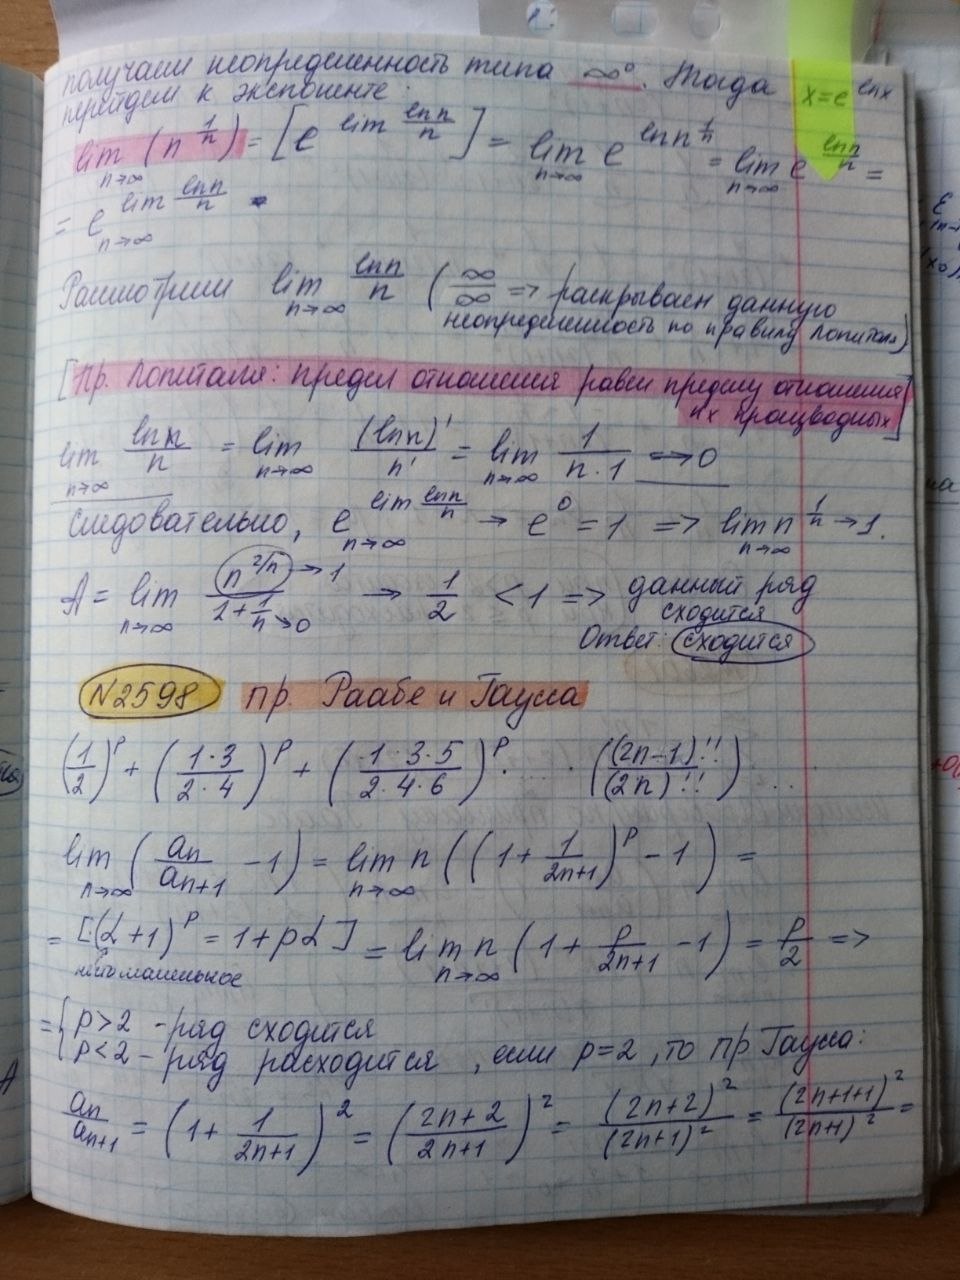 получаем неопределенность типа ∞⁰. Тогда x=e^{lnx}
перейдем к экспоненте:
lim_{n→∞} (n^{1/n}) = [e^{lim ln n/n}] = lim_{n→∞} e^{ln n^{1/n}} = lim_{n→∞} e^{ln n/n} =
= e^{lim_{n→∞} ln n/n}
Рассмотрим lim_{n→∞} ln n/n (∞/∞ => раскрываем данную
неопределенность по правилу Лопиталя)
[Пр. Лопиталя: предел отношения равен пределу отношения
их производных]
lim_{n→∞} ln n/n = lim_{n→∞} (ln n)'/n' = lim_{n→∞} 1/(n·1) => 0
Следовательно, e^{lim_{n→∞} ln n/n} → e^0 = 1 => lim_{n→∞} n^{1/n} → 1.
A = lim_{n→∞} n^{2/n} → 1 / 2 + 1/n → 0 → 1/2 < 1 => данный ряд
сходится
Ответ: сходится
N2598 пр. Раабе и Гаусса
(1/2)^p + (1·3/2·4)^p + (1·3·5/2·4·6)^p ..... ((2n-1)!!/(2n)!!) ...
lim_{n→∞} (a_n/a_{n+1} - 1) = lim_{n→∞} n ((1 + 1/(2n+1))^p - 1) =
= [(α+1)^p = 1+pα] = lim_{n→∞} n (1 + p/(2n+1) - 1) = p/2 =>
= { p>2 - ряд сходится
p<2 - ряд расходится, если p=2, то пр Гаусса:
a_n/a_{n+1} = (1 + 1/(2n+1))^2 = ((2n+2)/(2n+1))^2 = (2n+2)^2/(2n+1)^2 = (2n+1+1)^2/(2n+1)^2 =